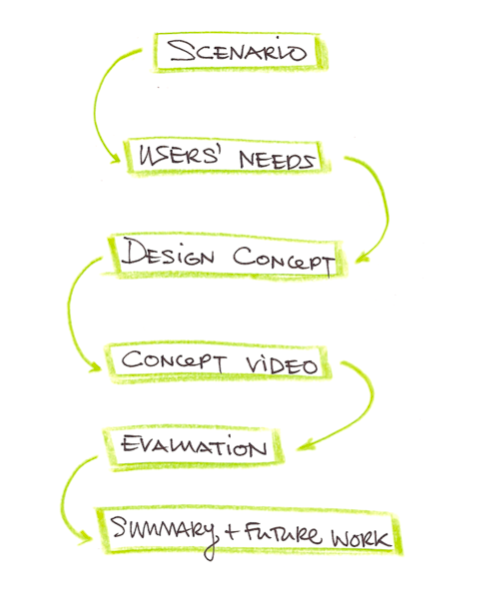 SCENARIO
USERS' NEEDS
DESIGN CONCEPT
CONCEPT VIDEO
EVALUATION
SUMMARY + FUTURE WORK